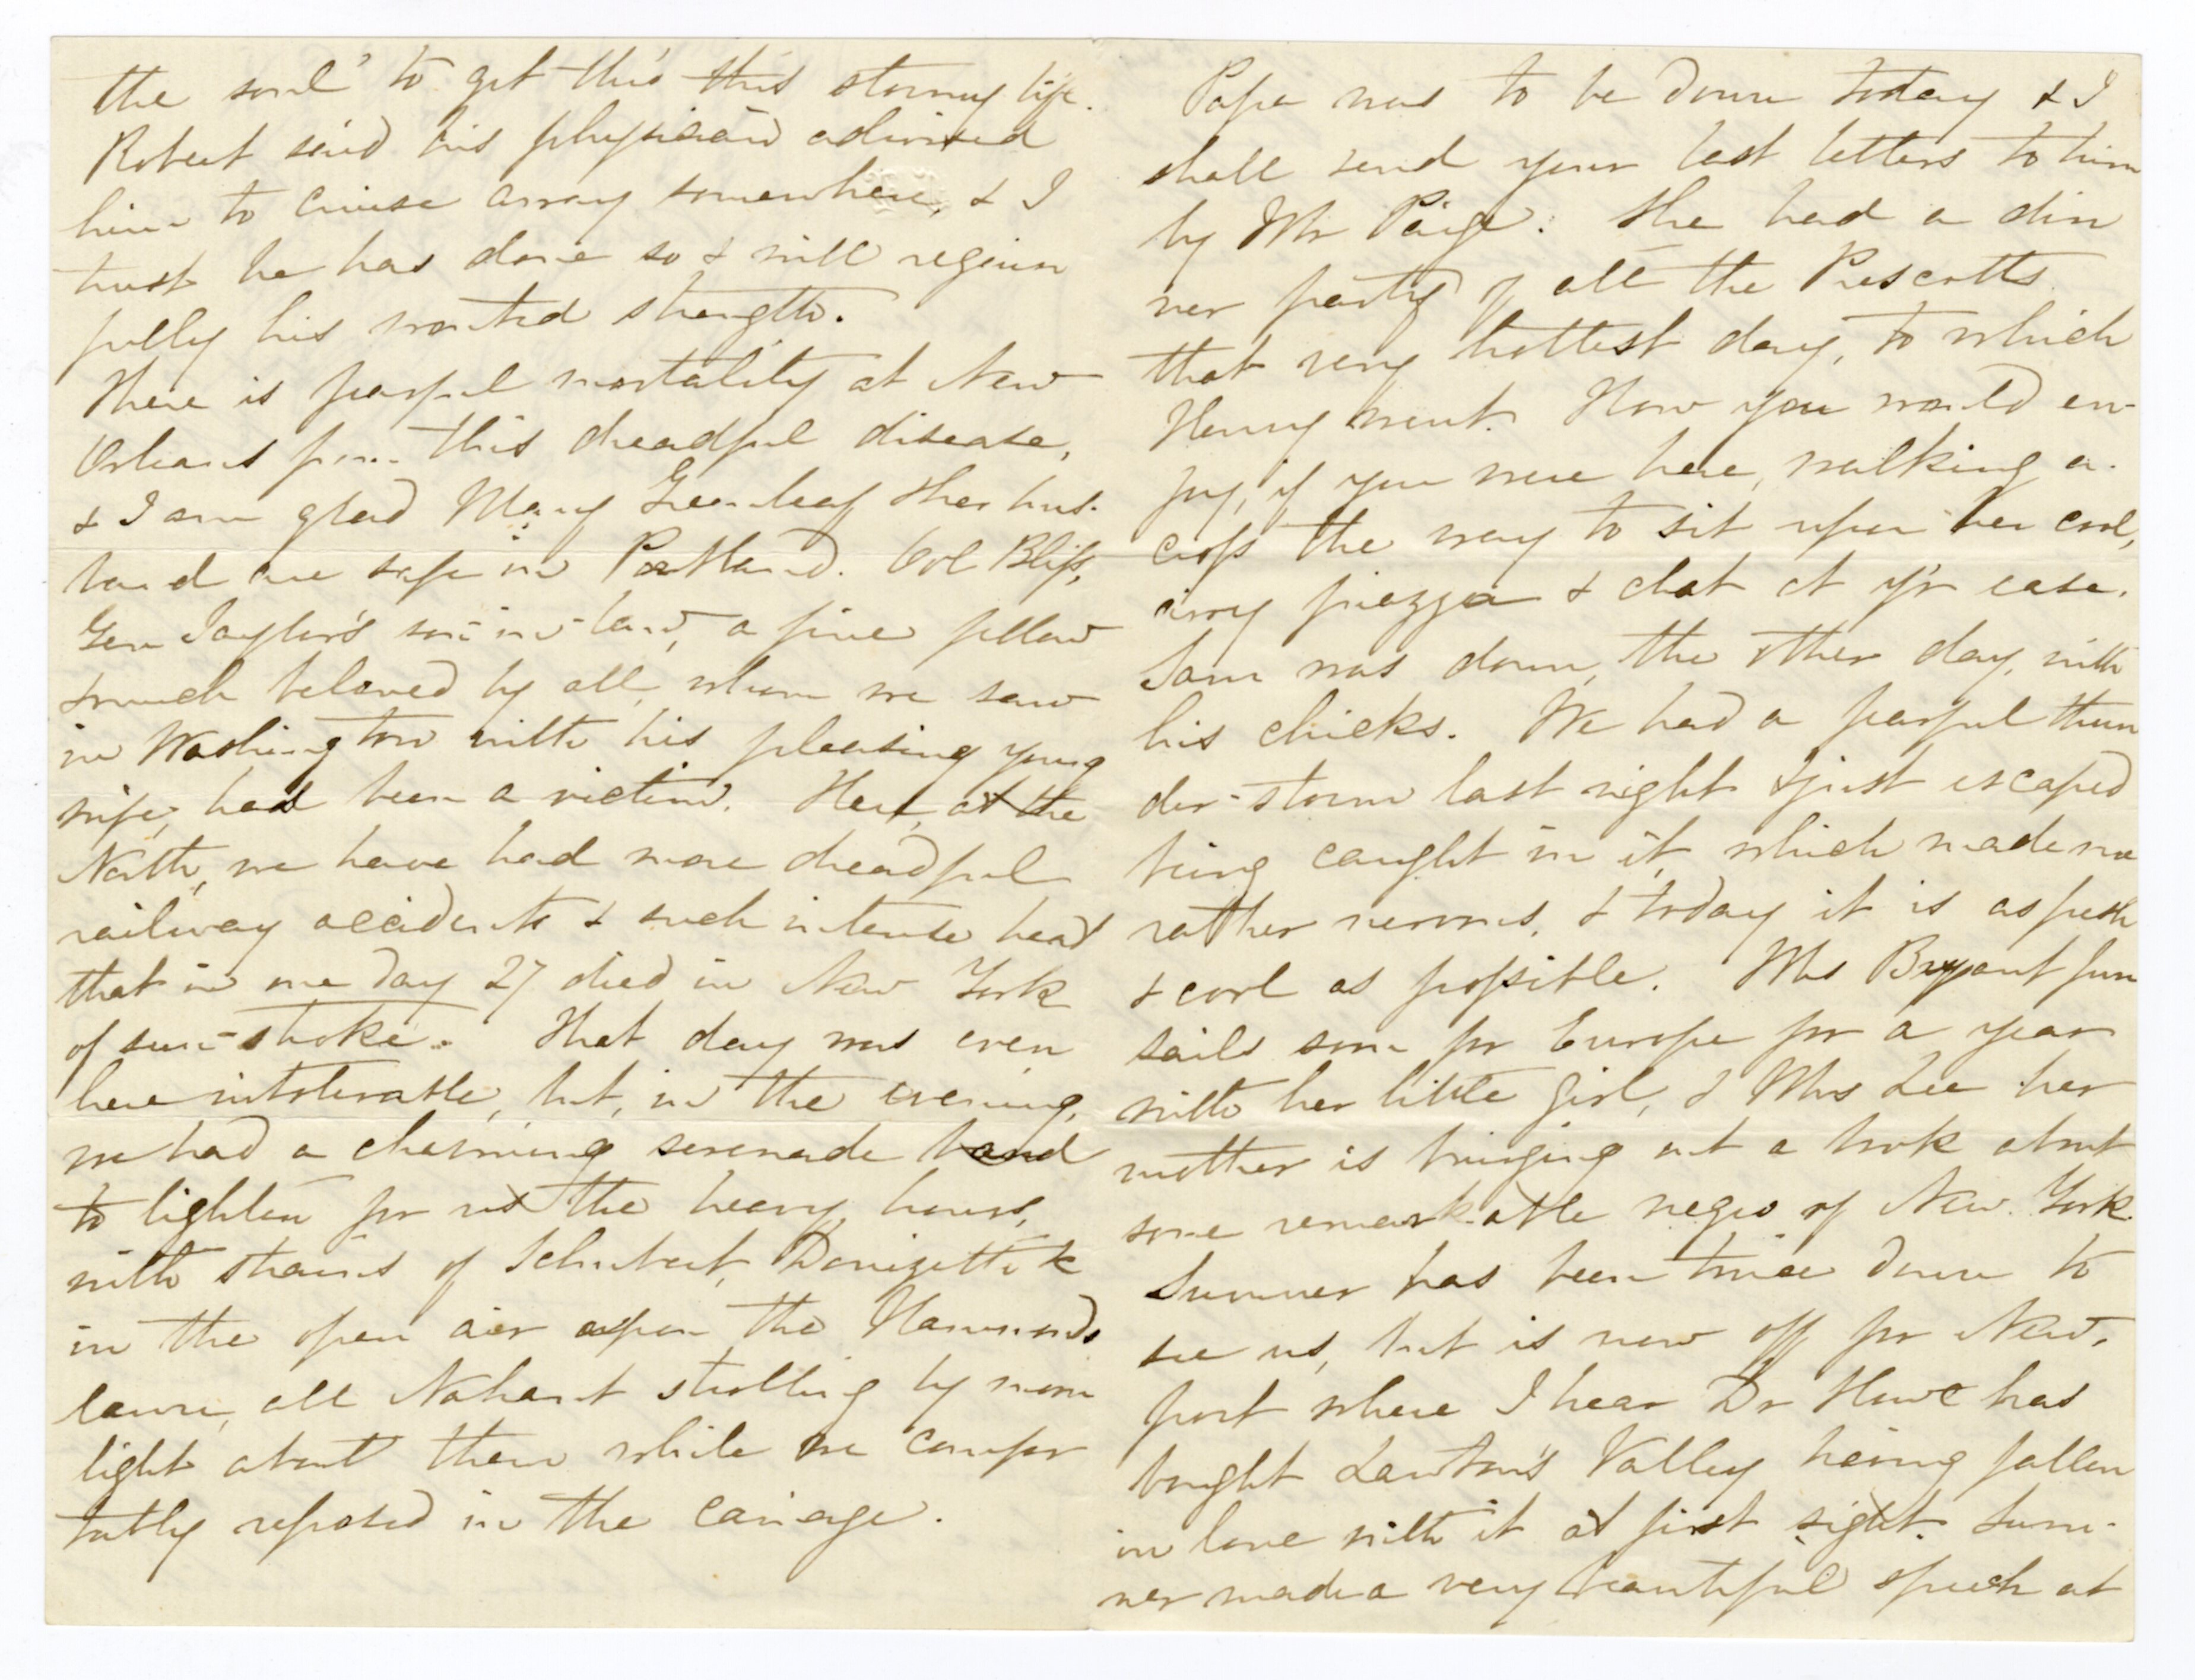 the soul' to get thro' this stormy life.
Robert said his physician advised
him to cruise away somewhere, & I
trust he has done so & will regain
fully his wonted strength.
There is fearful mortality at New
Orleans from this dreadful disease,
& I am glad Mary Greenleaf & her hus-
band are safe in Portland. Col Bliss,
Gen Taylor's son-in-law, a fine fellow
& much beloved by all, whom we saw
in Washington with his pleasing young
wife, has been a victim. Here, at the
North, we have had more dreadful
railway accidents & such intense heat
that in one day 27 died in New York
of sun-stroke. That day was even
here intolerable, but, in the evening,
we had a charming serenade band
to lighten for us the heavy hours,
with strains of Schubert, Donizetti &c
in the open air upon the Hammonds
lawn, all Nahant strolling by moon
light about them while we comfor
tably reposed in the carriage.
Papa was to be down today & I
shall send your last letters to him
by Mr Paige. She had a din
ner party of all the Prescotts
that very hottest day, to which
Henry went. How you would en-
joy, if you were here, walking a-
cross the way to sit upon her cool,
airy piazza & chat at yr ease.
Sam was down, the other day, with
his chicks. We had a fearful thun
der-storm last night & just escaped
being caught in it, which made me
rather nervous, & today it is as fresh
& cool as possible. Mrs Bryant jun
sails soon for Europe for a year
with her little girl, & Mrs Lee her
mother is bringing out a book about
some remarkable negro of New-York.
Sumner has been twice down to
see us, but is now off for New-
port where I hear Dr Howe has
bought Lawton's Valley having fallen
in love with it at first sight. Sum-
ner made a very beautiful speech at